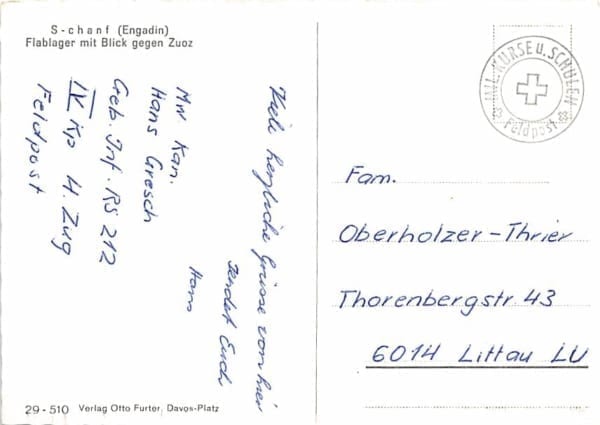 S-chanf (Engadin)
Flablager mit Blick gegen Zuoz
Mw Kan.
Hans Gresch
Geb. Inf. RS 212
IV Kp 4. Zug
Feldpost
Viele herzliche Grüsse von hier
sendet Euch
Hans
MIL. KURSE u. SCHULEN
Feldpost
Fam.
Oberholzer-Thrier
Thorenbergstr. 43
6014 Littau LU
29-510 Verlag Otto Furter, Davos-Platz